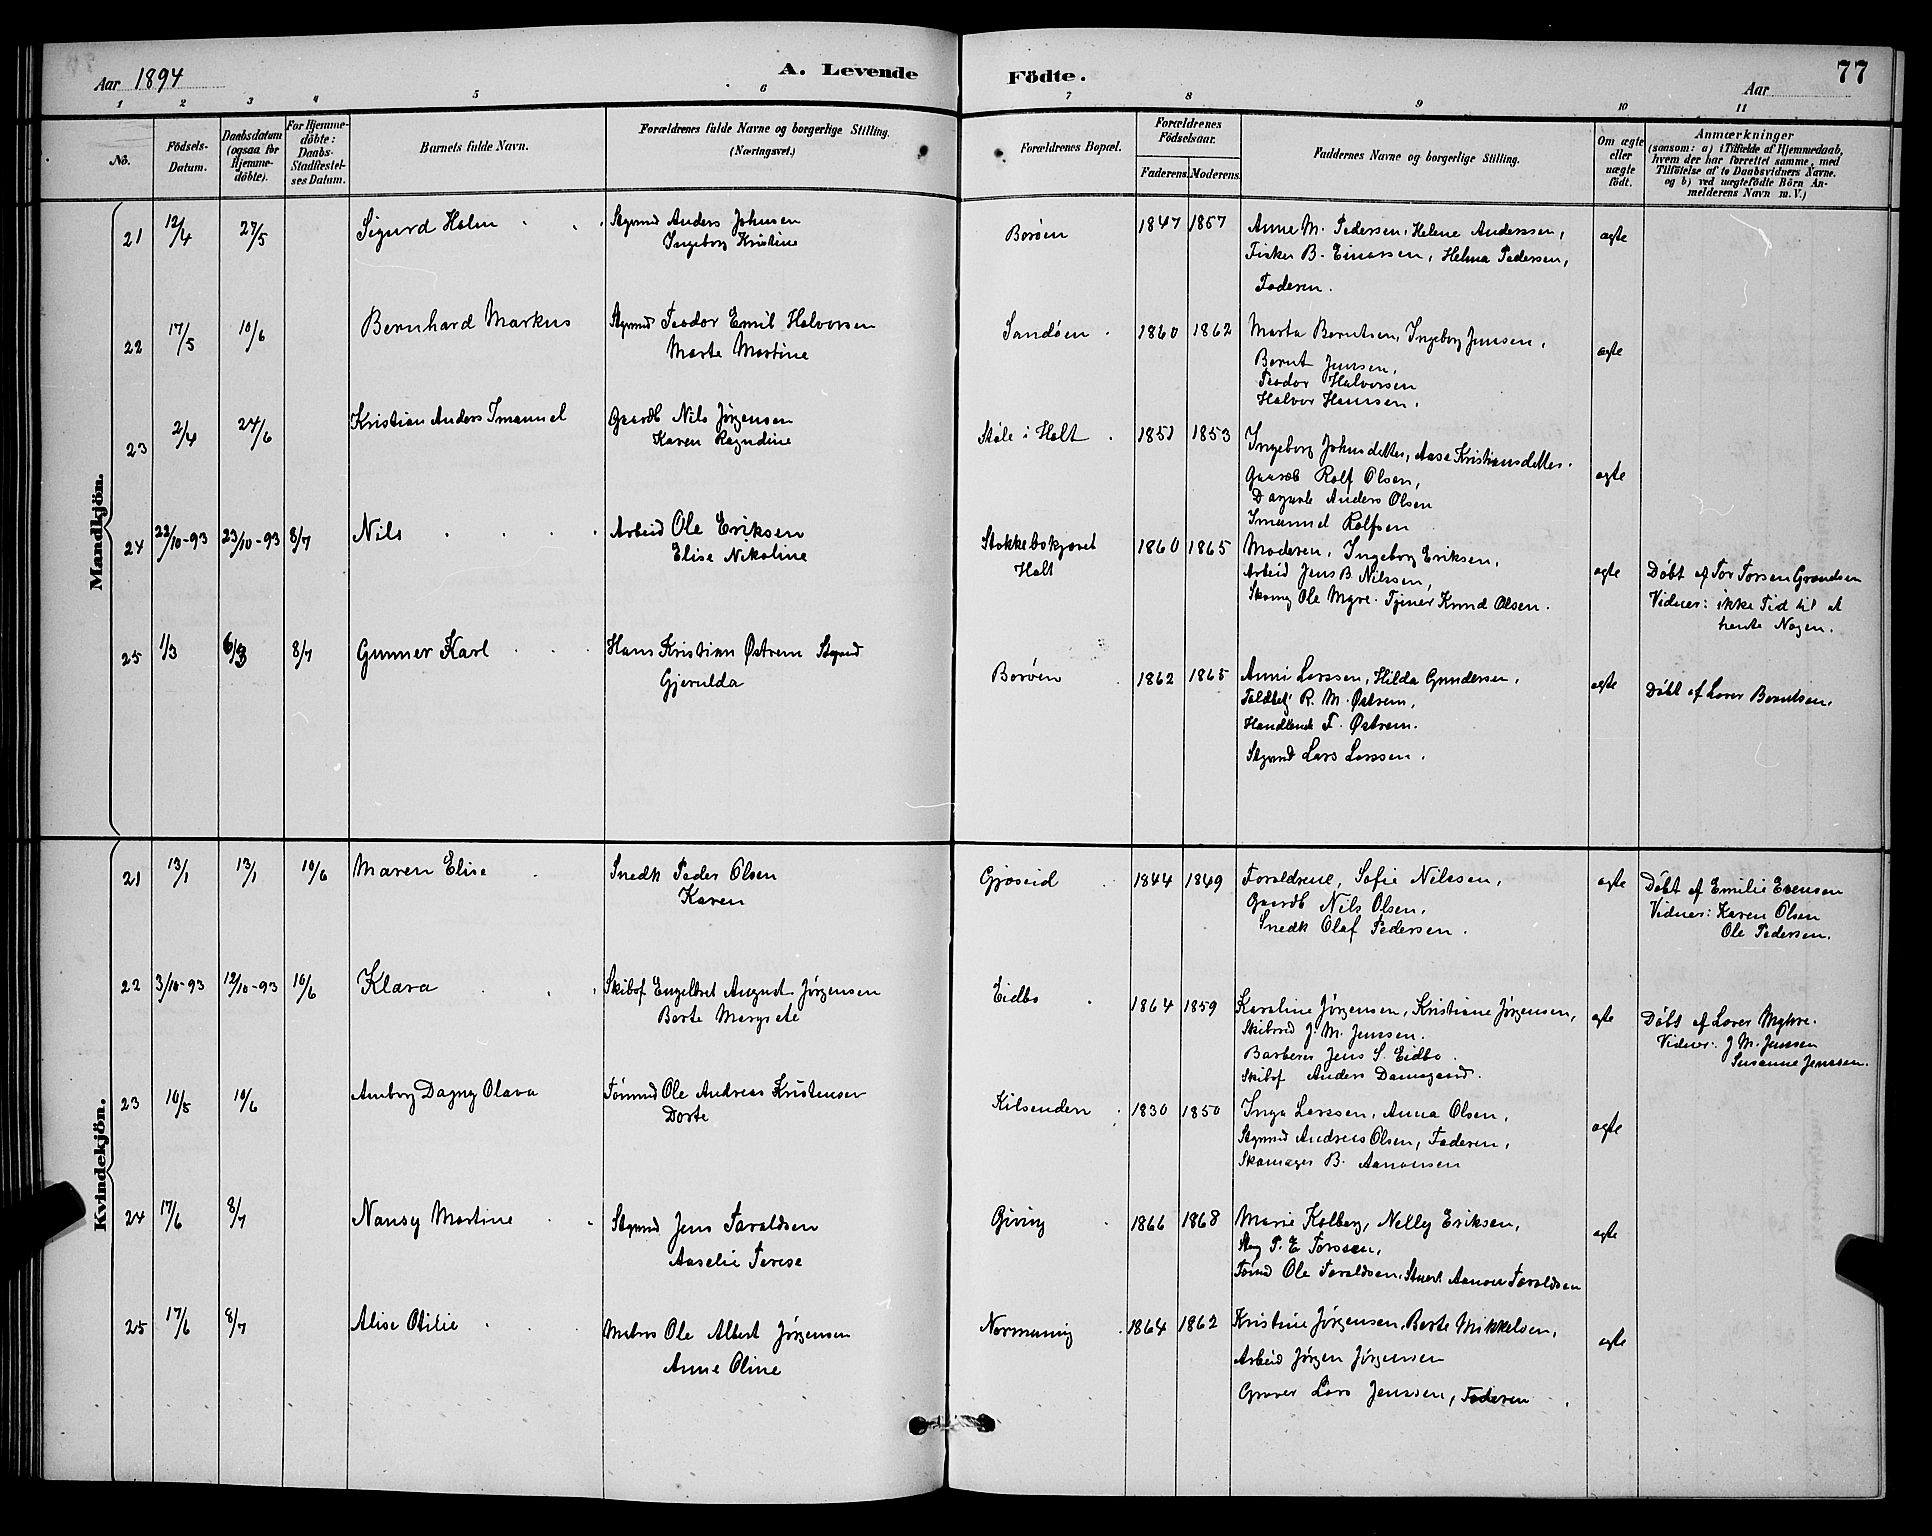 Aar 1894
A. Levende
Födte.
Aar
77
1 2 3 4 5 6 7 8 9 10 11
No.
Födsels-Datum.
Daabsdatum (ogsaa for Hjemme-döbte).
For Hjemme-döbte: Daabs-Stadfæstel-ses Datum.
Barnets fulde Navn.
Forældrenes fulde Navne og borgerlige Stilling.
(Næringsvei.)
Forældrenes Bopæl.
Forældrenes Födselsaar.
Faderens. Moderens.
Faddernes Navne og borgerlige Stilling.
Om ægte eller uægte födt.
Anmærkninger
(saasom: a) i Tilfælde af Hjemmedaab,
hvem der har forrettet samme, med
Tilföielse af to Daabsvidners Navne.
og b) ved uægtefödte Börn An-
melderens Navn m. V.)
Mandkjön.
21 12/4 27/5 Sigurd Holm Styrmd Anders Johnsen
Ingeborg Kristine
Borøen 1847 1857 Anne M. Pedersen, Helene Anderssen,
Fisker B. Einarsen, Helma Pedersen,
Faderen.
ægte
22 17/5 10/6 Bernhard Markus Styrmd Teodor Emil Halvorsen
Marte Martine
Sandøen 1860 1862 Marta Berntsen, Ingeborg Jensen,
Bernt Jensen,
Teodor Halvorsen
Halvor Hansen.
ægte
23 2/4 24/6 Kristian Anders Imanuel Gaardb Nils Jørgensen
Karen Ragndine
Støle i Holt 1851 1853 Ingeborg Johnsdatter, Aase Kristiansdatter.
Gaardb Rolf Olsen,
Anders Olsen
Imanuel Rolfsen
ægte
24 22/10-93 23/10-93 8/7 Nils Arbeid Ole Eriksen
Elise Nikoline
Holt
1860 1865 Moderen, Ingeborg Eriksen,
Arbeid Jens B. Nilssen,
Skomg Ole Myre. Tjener Knud Olsen.
ægte
Døbt af Tor Torsen Grandsen
Vidner: ikke Tid til at
hente Nogen.
25 1/3 6/3 8/7 Gunner Karl Hans Kristian Østrem Styrmd
Gjerulda
Borøen 1862 1865 Anni Larssen, Hilda Gundersen,
Toldbetj R. M. Østrem,
Handlende F. Østrem.
Styrmd Lars Larssen.
ægte
Døbt af Lærer Berntsen.
Kvindekjön.
21 13/1 13/1 10/6 Maren Elise Snedk Peder Olsen
Karen
Gjøseid 1844 1849 Forældrene, Sofie Nilssen,
Gaardb Nils Olsen,
Snedk Olaf Pedersen.
ægte
Døbt af Emilie Evensen
Vidner: Karen Olsen
Ole Pedersen.
22 3/10-93 12/10-93 10/6 Klara Skibsf Engelbret August Jørgensen
Berte Margrete
Eidbo 1864 1859 Karoline Jørgensen, Kristiane Jørgensen,
Skibsred J. M. Jenssen.
Barberer Jens S. Eidbo.
Skibsf Anders Damgaard.
ægte
Døbt af Lærer Myhre.
Vidner: J M. Jenssen
Susanne Jenssen.
23 10/5 10/6 Amborg Dagny Olava Tømmd Ole Andreas Kristensen
Dorte
Kilsenden 1830 1850 Inga Larssen, Anna Olsen,
Styrmd Andreas Olsen, Faderen,
Skomager B. Aanonsen
ægte
24 17/6 8/7 Nansy Martine Styrmd Jens Taraldsen
Aaselie Terese
Giving 1866 1868 Marie Kolberg, Nelly Eriksen,
P. E Torssen,
Tømd Ole Taraldsen, Stuert Aanon Taraldsen
ægte
25 17/6 8/7 Alise Otilie Matros Ole Albert Jørgensen
Anne Oline
Normaning 1864 1862 Kristine Jørgensen, Berte Mikkelsen,
Arbeid Jørgen Jørgensen
Graver Lars Jenssen, Faderen
ægte